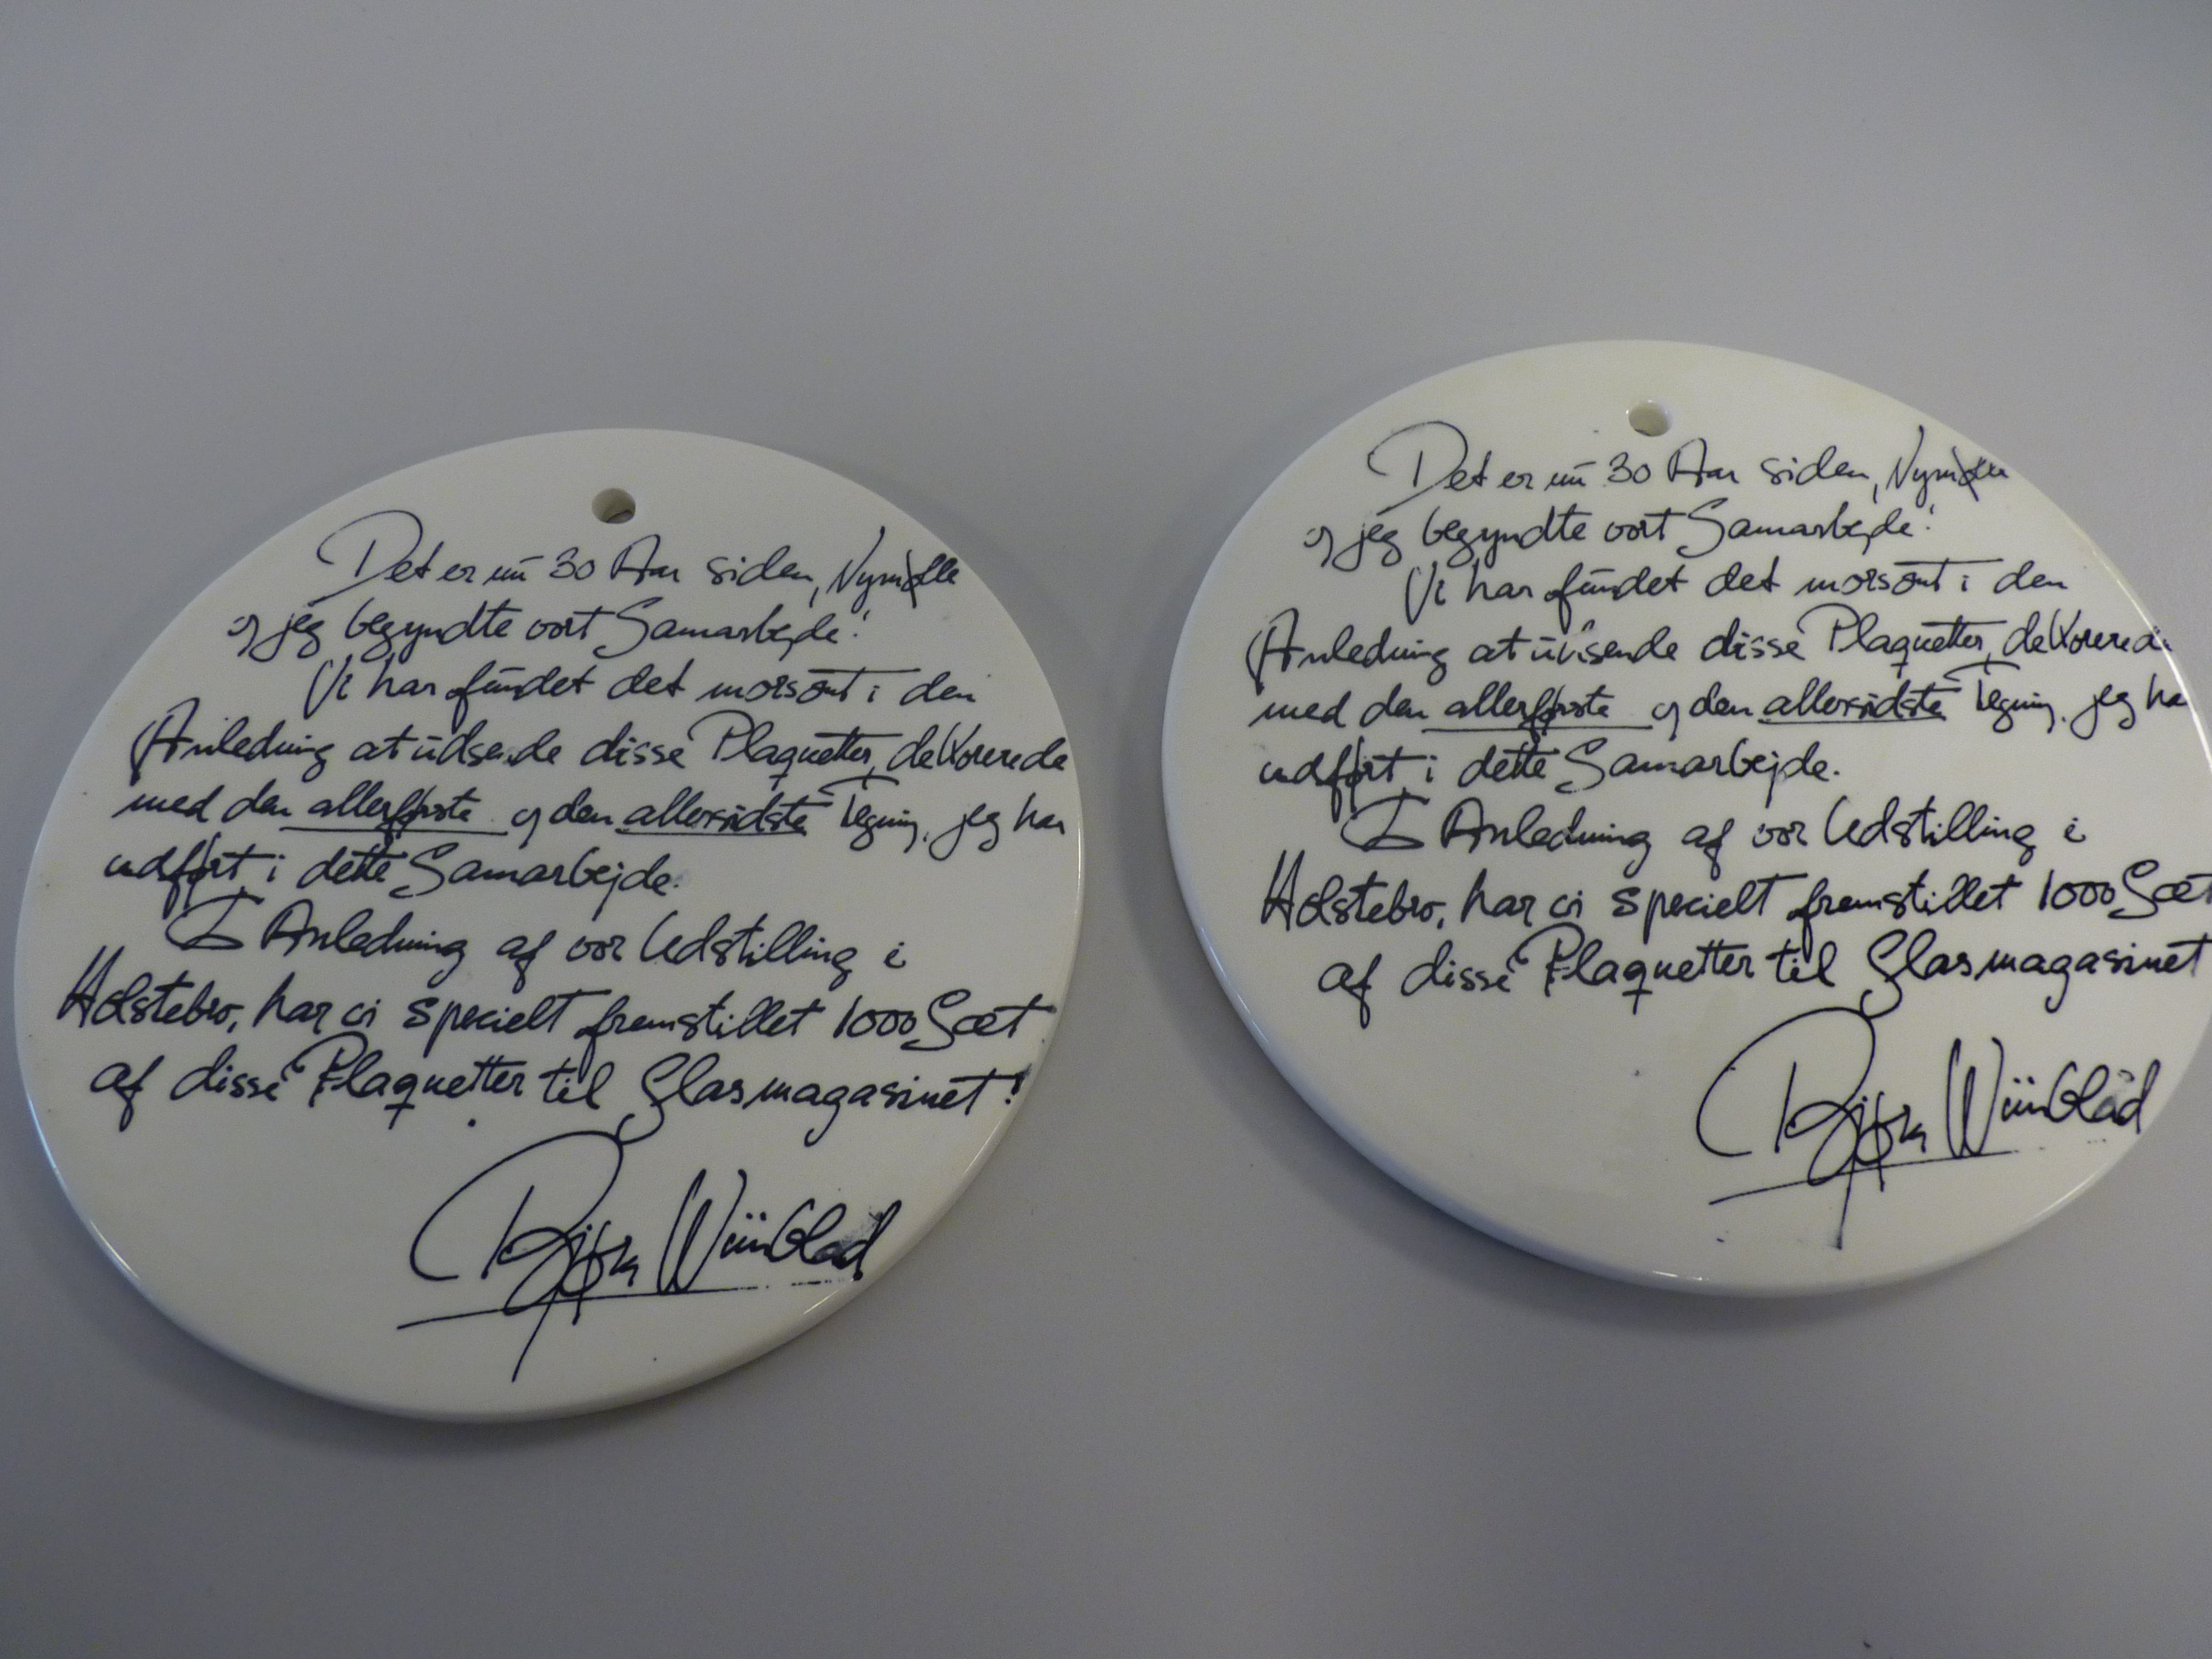 Det er nu 30 Aar siden, Nymølle
og jeg begyndte vort Samarbejde!
Vi har fundet det morsomt i den
Anledning at udsende disse Plaquetter, dekorerede
med den allerførste og den allersidste Tegning, jeg har
udført i dette Samarbejde.
I Anledning af vor Udstilling i
Holstebro, har vi specielt fremstillet 1000 Sæt
af disse Plaquetter til Glasmagasinet!
Bjørn Wiinblad
Det er nu 30 Aar siden, Nymølle
og jeg begyndte vort Samarbejde!
Vi har fundet det morsomt i den
Anledning at udsende disse Plaquetter, dekorerede
med den allerførste og den allersidste Tegning, jeg ha
udført i dette Samarbejde.
I Anledning af vor Udstilling i
Holstebro, har vi specielt fremstillet 1000 Sæt
af disse Plaquetter til Glasmagasinet
Bjørn Wiinblad